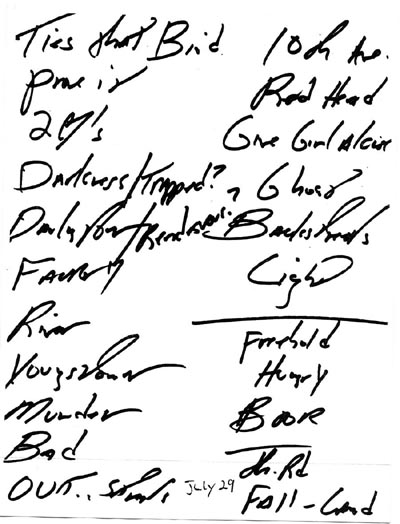 Ties that Bind
Prove it
2 ♥'s
Darkness/Trapped?
Factory
River
Youngstown
Murder
Bad
OUT.. Streets
July 29
10th Ave.
Red Head
Give Girl a Kiss
, Ghost
Backstreets
Light
Freehold
Hungry
BORN
Th. Rd
FAll - Land